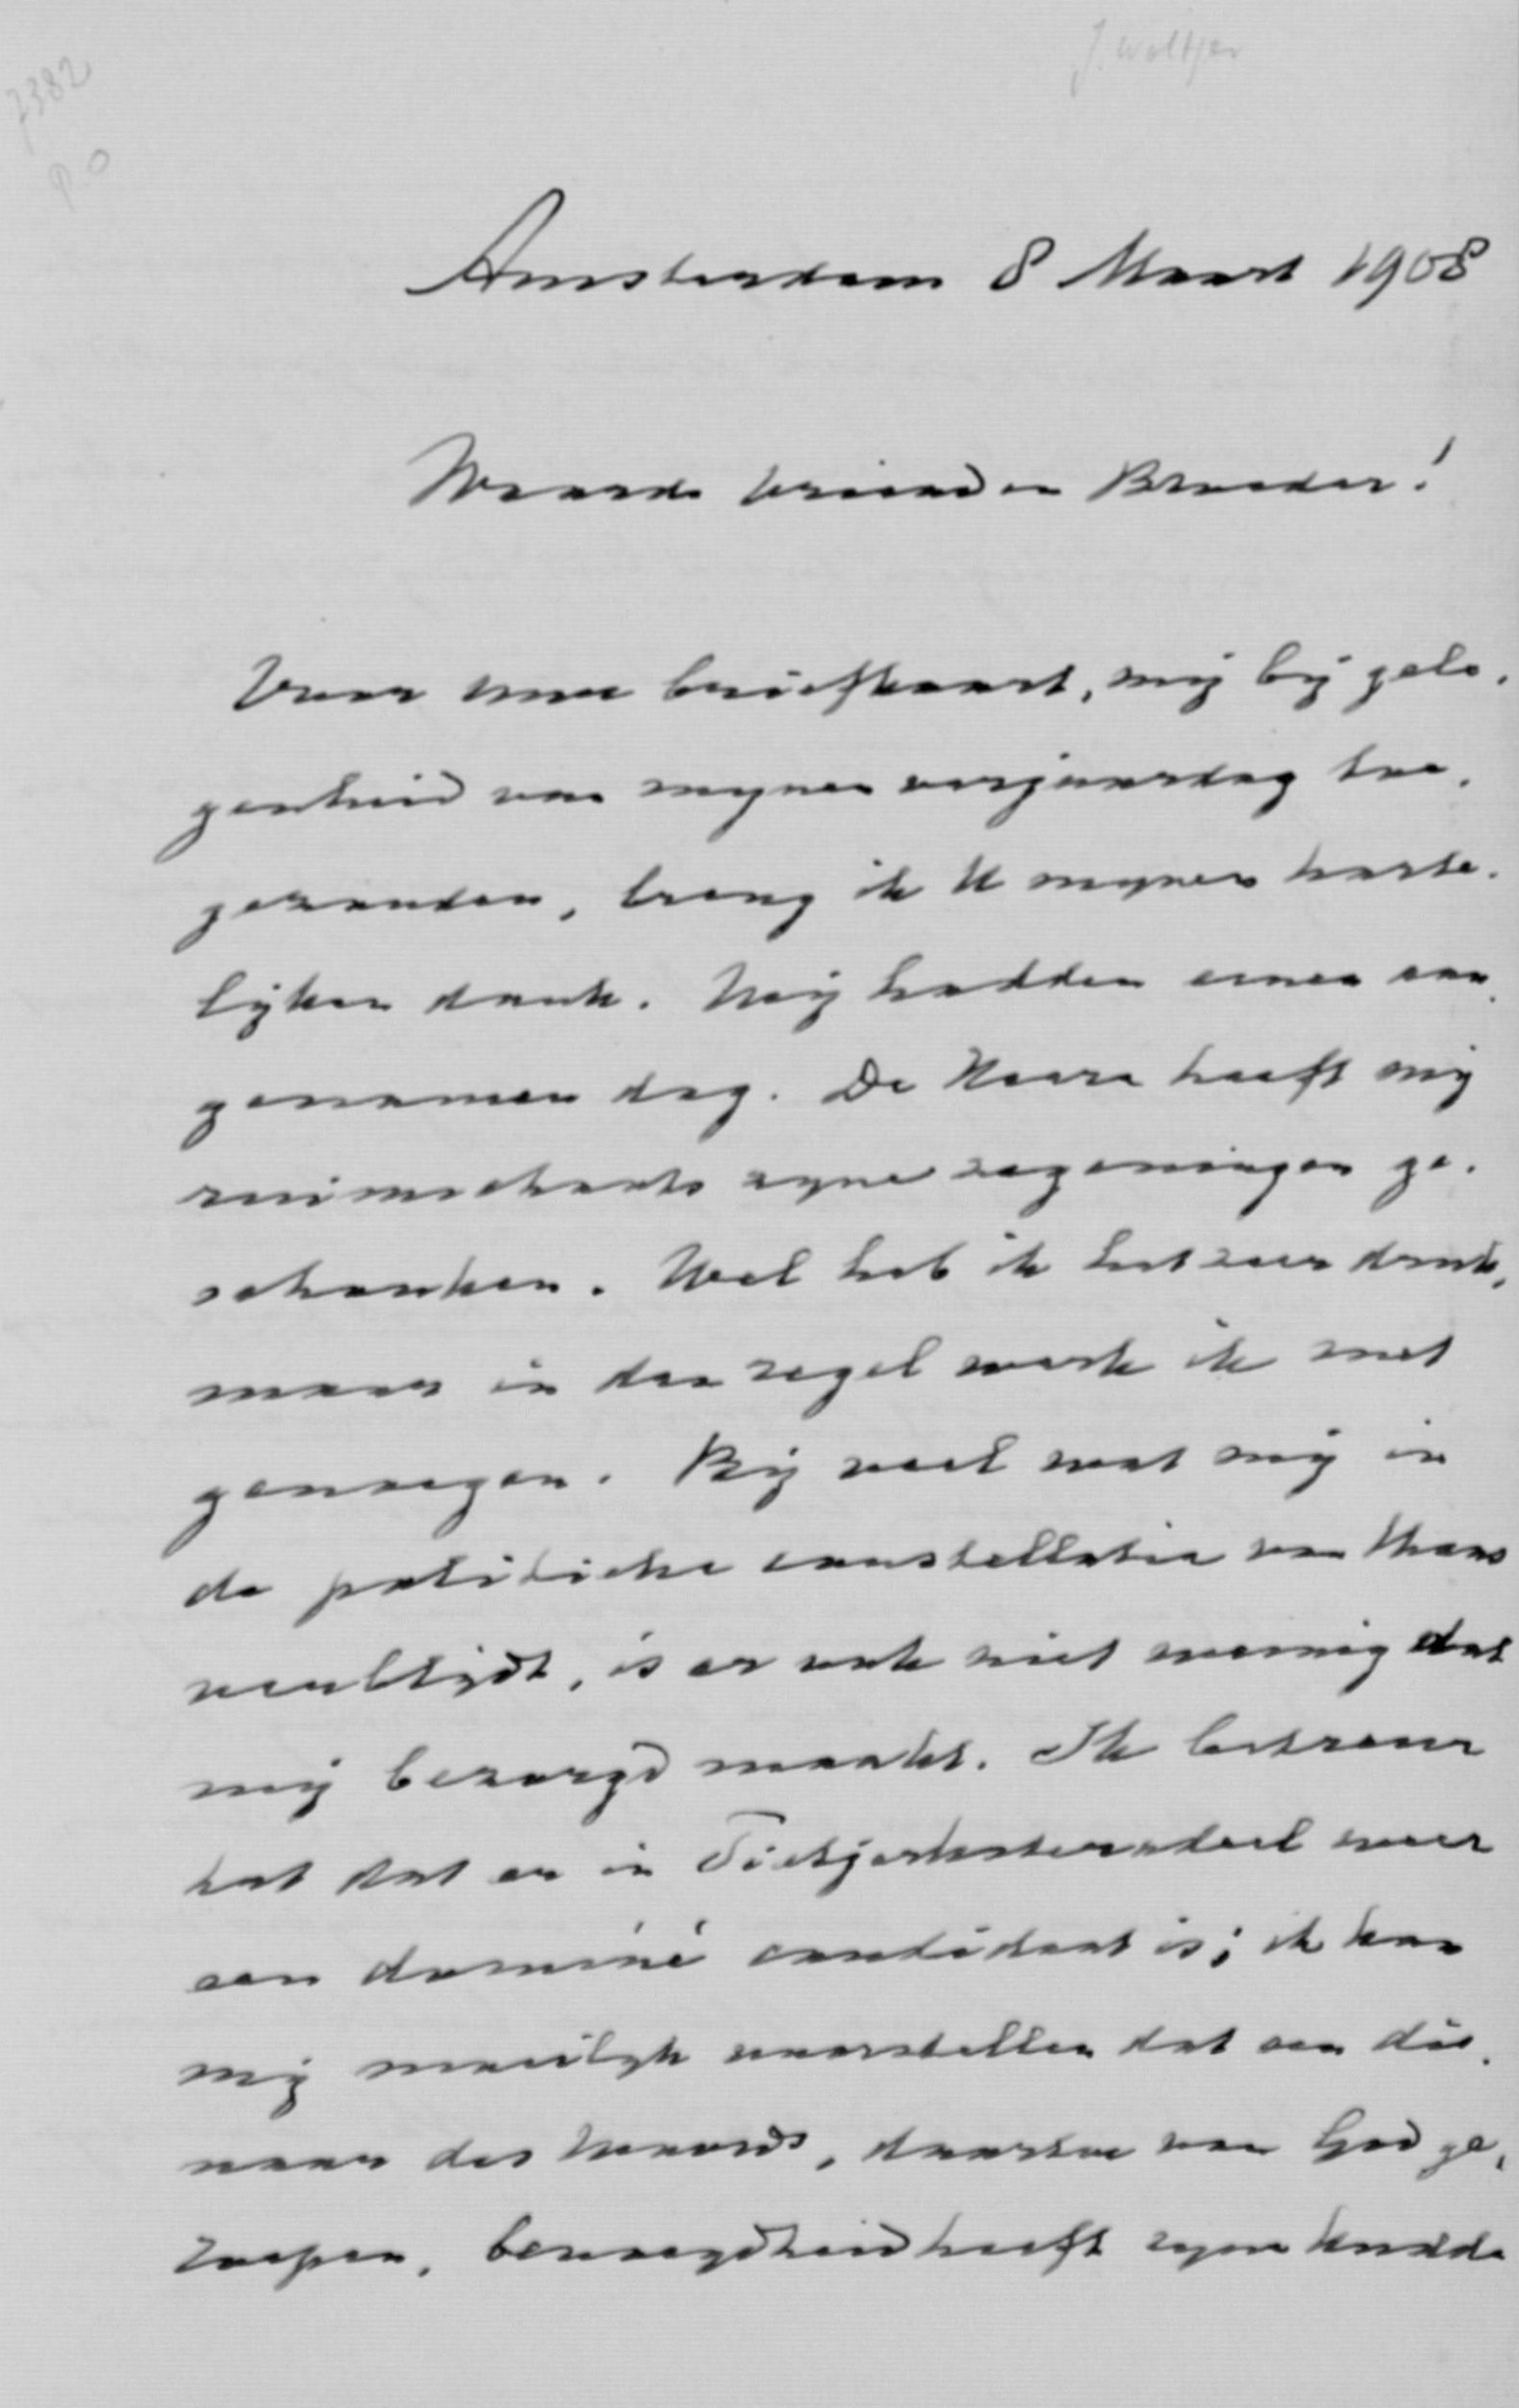 J. Woltjer
7382
Amsterdam 8 Maart 1908
Waarde Vriend en Broeder!
Voor uwe briefkaart, mij bij gele-
genheid van mynen verjaardag toe-
gezonden, breng ik U mynen harte-
lijken dank. Wij hadden eenen aan-
genamen dag. De Heere heeft mij
ruimschoots zyne zegeningen ge-
schonken. Wel heb ik het zeer druk,
maar in den regel werk ik met
genoegen. Bij veel wat mij in
de politieke constellatie van thans
verblijdt, is er ook niet weinig dat
mij bezorgd maakt. Ik betreur
het dat er in Tietjerksteradeel weer
een dominé candidaat is; ik kan
mij moeilyk voorstellen dat een die-
naar des Woords, daartoe van God ge-
roepen, bevoegdheid heeft zyne kudde